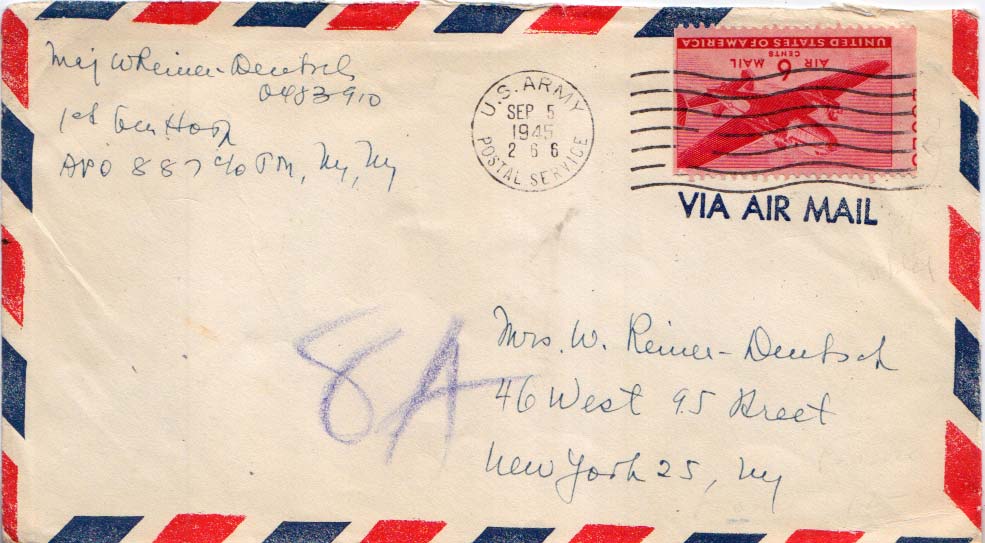 Maj W Reiner-Deutsch
0483910
1st Gen Hosp
APO 887 c/o PM, NY, NY
U.S. ARMY
SEP 5
1945
2 6 6
POSTAL SERVICE
UNITED STATES OF AMERICA
AIR 6 MAIL
CENTS
VIA AIR MAIL
8A
Mrs. W. Reiner-Deutsch
46 West 95 Street
New York 25, NY